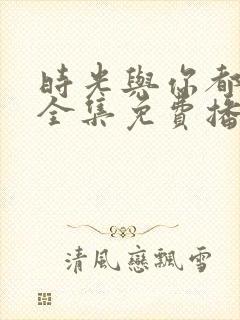 時光與你都
全集免費播
清風戀飄雪